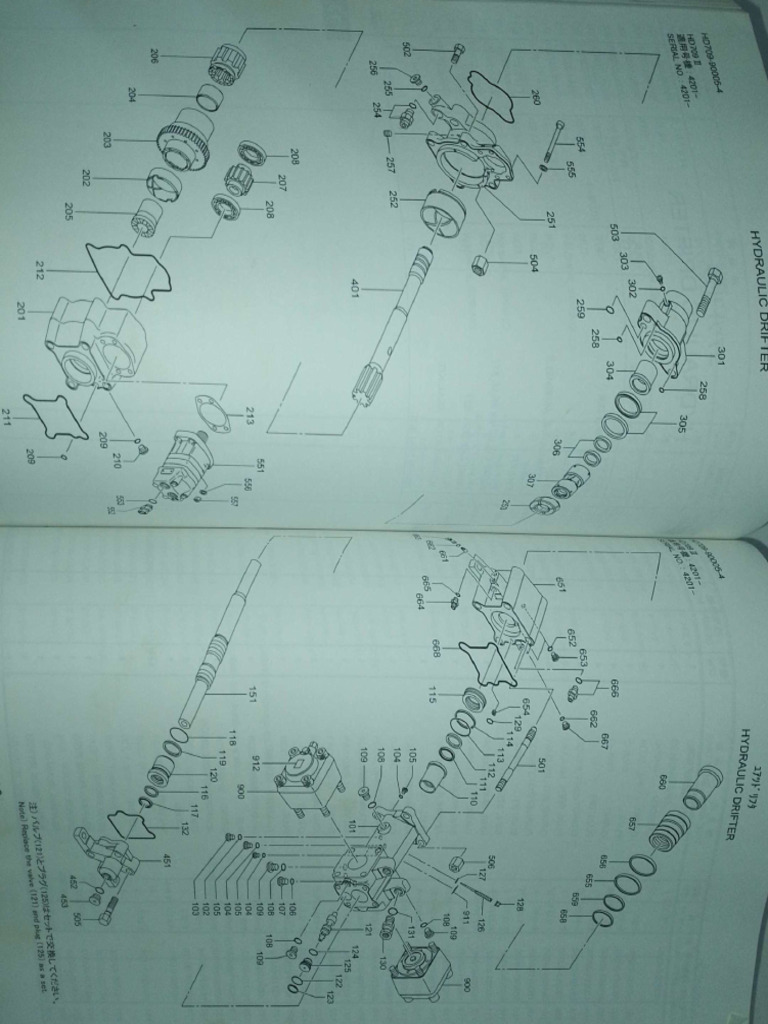 HYDRAULIC DRIFTER
HD709-90005-4
HD709 II
適用号機 4201-
SERIAL NO : 4201-
503
301
303
302
259
258
304
258
305
306
307
203
554
555
260
502
256
255
254
257
252
251
504
401
206
204
203
202
205
208
207
208
212
201
211
213
209
210
209
551
556
557
HYDRAULIC DRIFTER
4201-
SERIAL NO : 4201-
660
657
656
655
659
658
651
661
665
664
652
653
666
668
654
129
662
667
115
114
113
112
111
110
501
151
118
119
120
116
117
132
451
452
453
505
912
900
109
108
104
105
101
506
127
128
126
911
103
102
105
104
105
104
109
108
107
106
121
108
109
124
125
122
123
131
130
108
109
900
注) バルブ(121)とプラグ(125)はセットで交換してください。
Note) Replace the valve (121) and plug (125) as a set.